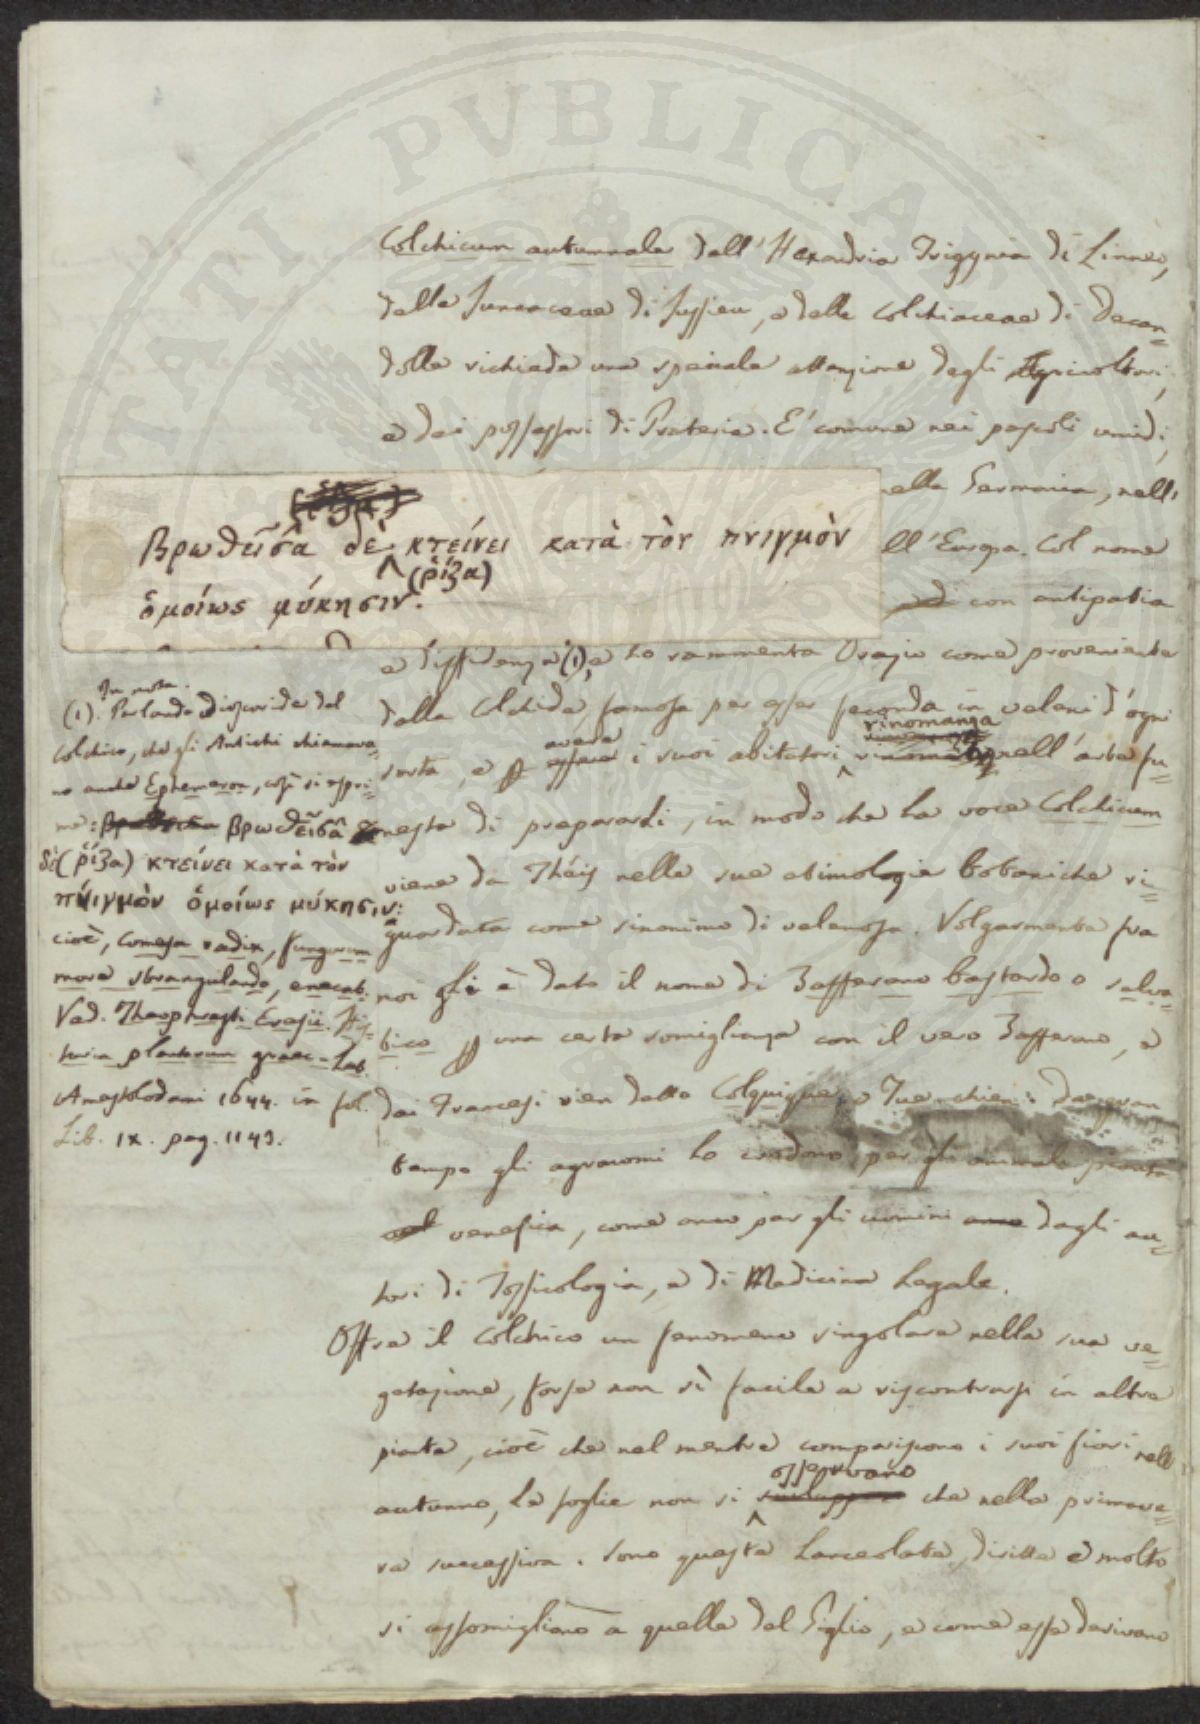 Colchicum autunnale dell'Hexandria Trigynia di Linneo,
delle Juncaceae di Jussieu, e delle Colchiaceae di Decan=
dolle richiede una speciale attenzione degli Agricoltori,
e dei possessori di Praterie. E' comune nei pascoli umidi,
nella Germania, nell'
ell'Europa. Col nome
con antipatia
e diffidenza (1), e lo rammenta Orazio come proveniente
dalla Colchide, famosa per esser feconda in veleni d'ogni
avere rinomanza
sorta, e i suoi abitatori nell'arte fu=
nesta di prepararli, in modo che la voce Colchicum
viene da Théis nelle sue etimologie botaniche ri=
guardata come sinonimo di velenosa. Volgarmente fra
noi gli è dato il nome di Zafferano bastardo o salva=
tico per una certa somiglianza con il vero Zafferano, e
dai Francesi vien detto Colquique, o Tue-chien: Da gran
tempo gli agronomi lo credono per gli animali pianta
venefica, come anco per gli uomini dagli au=
tori di Tossicologia, e di Medicina Legale.
Offre il Colchico un fenomeno singolare nella sua ve=
getazione, forse non sì facile a riscontrarsi in altre
piante, cioè che nel mentre compariscono i suoi fiori nell'
osservano
autunno, le foglie non si che nella primave=
ra successiva. Sono queste lanceolate, diritte e molto
si assomigliano a quelle del Giglio, e come esse derivano
βρωθεῖσα δὲ κτείνει κατὰ τὸν πνιγμὸν
(ῥίζα)
ὁμοίως μύκησιν.
In nota.
(1). Parlando Dioscoride del
Colchico, che gli Antichi chiamava=
no anche Ephemeron, così si espri=
me: βρωθεῖσα
δὲ (ῥίζα) κτείνει κατὰ τὸν
πνιγμὸν ὁμοίως μύκησιν:
cioè, Comesa radix, fungorum
more strangulando, enecat.
Ved. Theophrasti Eresii. His=
toria plantarum graec-Lat.
Amestolodami 1644. in fol.
Lib. IX. pag. 1143.